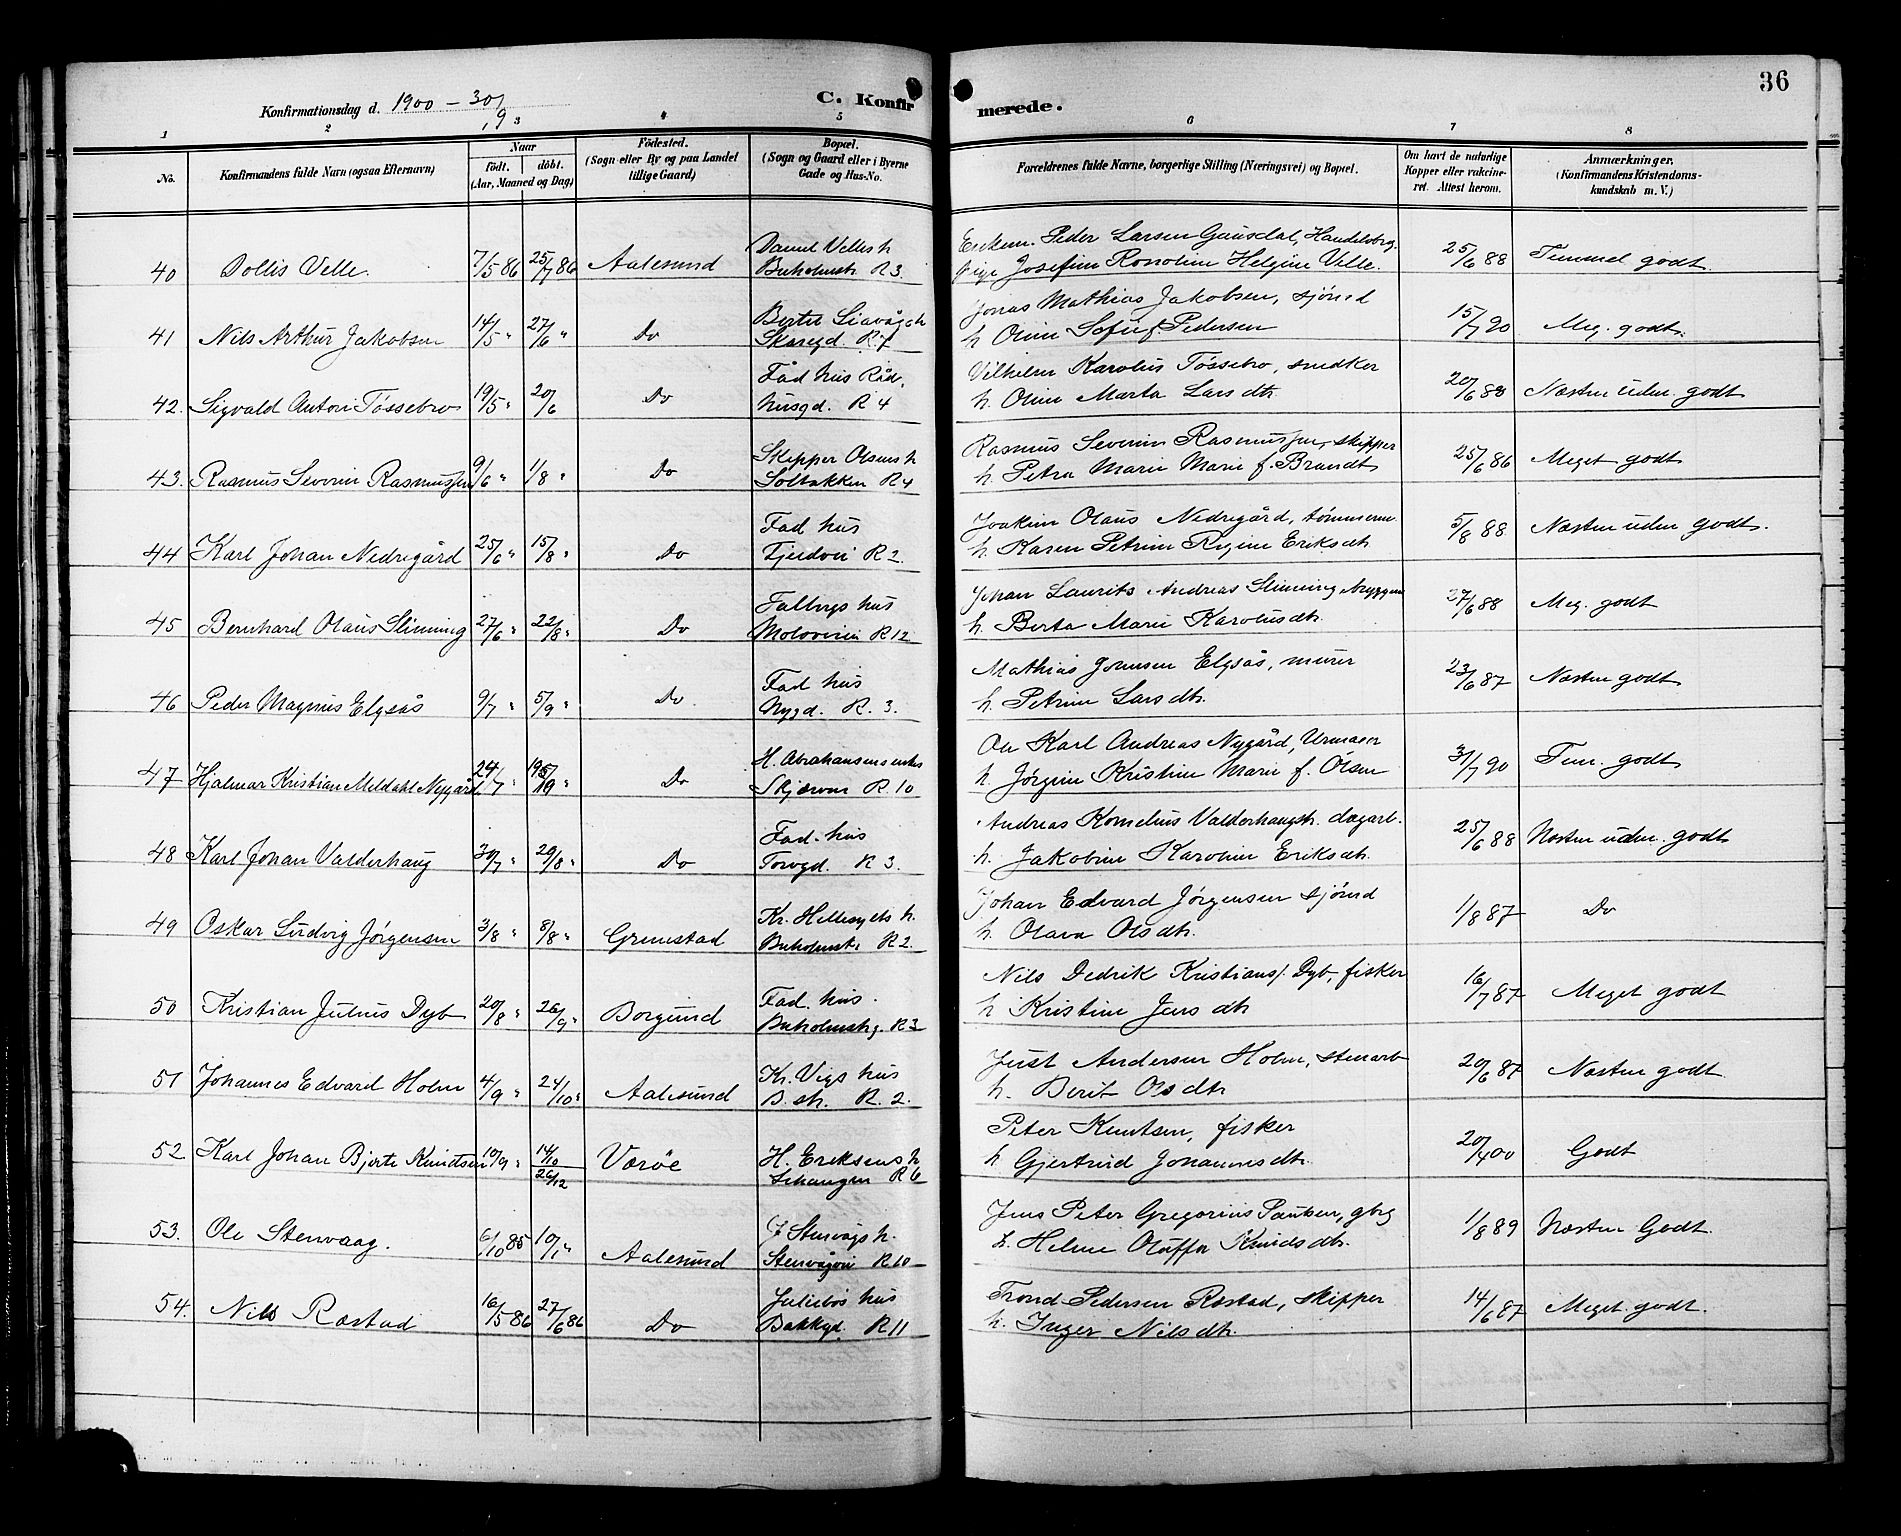 36
Konfirmationsdag d. 1900 - 30/9
C. Konfirmerede.
1 2 3 4 5 6 7 8
No. Konfirmandens fulde Navn (ogsaa Efternavn) Naar født. døbt. (Aar, Maaned og Dag) Fødested. (Sogn eller By og paa Landet tillige Gaard) Bopæl. (Sogn og Gaard eller i Byerne Gade og Hus-No. Forældrenes fulde Navne, borgerlige Stilling (Næringsvei) og Bopæl. Om havt de naturlige Kopper eller vakcineret. Attest herom. Anmærkninger. (Konfirmandens Kristendomskundskab m. V.)
40 Dollis Velle. 7/5 86 25/7 86 Aalesund Daniel Velles h Buholmstr R 3. Peder Larsen Gausdal, Handelsbrg. pige Josefine Helgine Velle. 25/6 88 Temmel godt
41 Nils Arthur Jakobsen 14/5 " 27/6 " Do h Skaregd. R. 7 Jonas Mathias Jakobsen, sjømd h Oline Sofie f. Pedersen 15/7 90 Meg. godt.
42. Sigvald Anton Tøssebro 19/5 " 20/6 Do Fad hus Rådhusgd. R 4 Vilhelm Karolus Tøssebro, snedker h. Oline Marta Larsdtr. 20/6 88 Næsten udm. godt
43. Rasmus Severin Rasmussen 9/6 " 1/8 " Do Skipper Olsens h Solbakken R 4 Rasmus Severin Rasmussen, skipper h. Petra Marie Marie f. Brandt 25/6 86 Meget godt
44 Karl Johan Nedregård 25/6 " 15/8 " Do Fad hus R 2. Joakim Olaus Nedregård, tømmerm. h. Karen Petrine Regine Eriksdtr. 5/8 88 Næsten uden godt.
45 Bernhard Olaus Slinning 27/6 " 22/8 " Do hus Moloveien R 12 Johan Laurits Andreas Slinning, h. Berta Marie Karolusdtr. 27/6 88 Meg. godt
46 Peder Magnus Elgsås 9/7 " 5/9 " Do. Fad hus Nygd. R. 3. Mathias Jonsen Elgsås, murer h. Petrine Larsdtr. 23/6 87 Næsten godt
47 Hjalmar Kristian Meldahl Nygård 24/7 " 19/9 " Do H. Abrahamsens Skjærven R. 10 Ole Karl Andreas Nygård, Urmager h. Jørgine Kristine Marie f. Olsen 31/7 90 Tem. godt
48 Karl Johan Valderhaug 30/7 " 29/8 " Do Fad. hus Torvgd. R 3. Andreas Kornelius Valderhaug, dagarb. h. Jakobine Karoline Eriksdtr. 25/6 88 Næsten udm. godt
49 Oskar Ludvig Jørgensen 3/8 " 8/8 " Grimstad Kr. Hellesylts h. Buholmstr R 2. Johan Edvard Jørgensen sjømd h. Olava Olsdtr. 1/8 87 Do
50 Kristian Julius Dyb 20/8 " 26/9 " Borgund Fad. hus. Buholmstr. R 3 Nils Dedrik Kristians. Dyb, fisker h Kristine Jensdtr 16/7 87 Meget godt
51 Johannes Edvard Holm 4/9 " 24/10 " Aalesund Kr. Vigs hus B. str. R. 2. Just Andersen Holm, stenarb h. Berit Olsdtr 20/6 87 Næsten godt
52. Karl Johan Bjerte Knudtsen 10/9 " 14/10 26/12 Værøe H. Eriksens h R 6 Peter Knutsen, fisker h Gjertrud Johannesdtr. 20/4 00 Godt
53. Ole Stenvaag. 6/10 85 10/1 " Aalesund J Stenvågs h. Stenvågvei R 10 Jens Peter Gregorius Paulsen, gbrg h. Heline Oluffa Knudsdtr. 1/8 89 Næsten Godt.
54. Nils Ræstad 16/5 86 27/6 86 Do Juliebøs hus Bakkgd. R 11 Trond Pedersen Ræstad, skipper h. Inger Nilsdtr. 14/6 87 Meget godt.